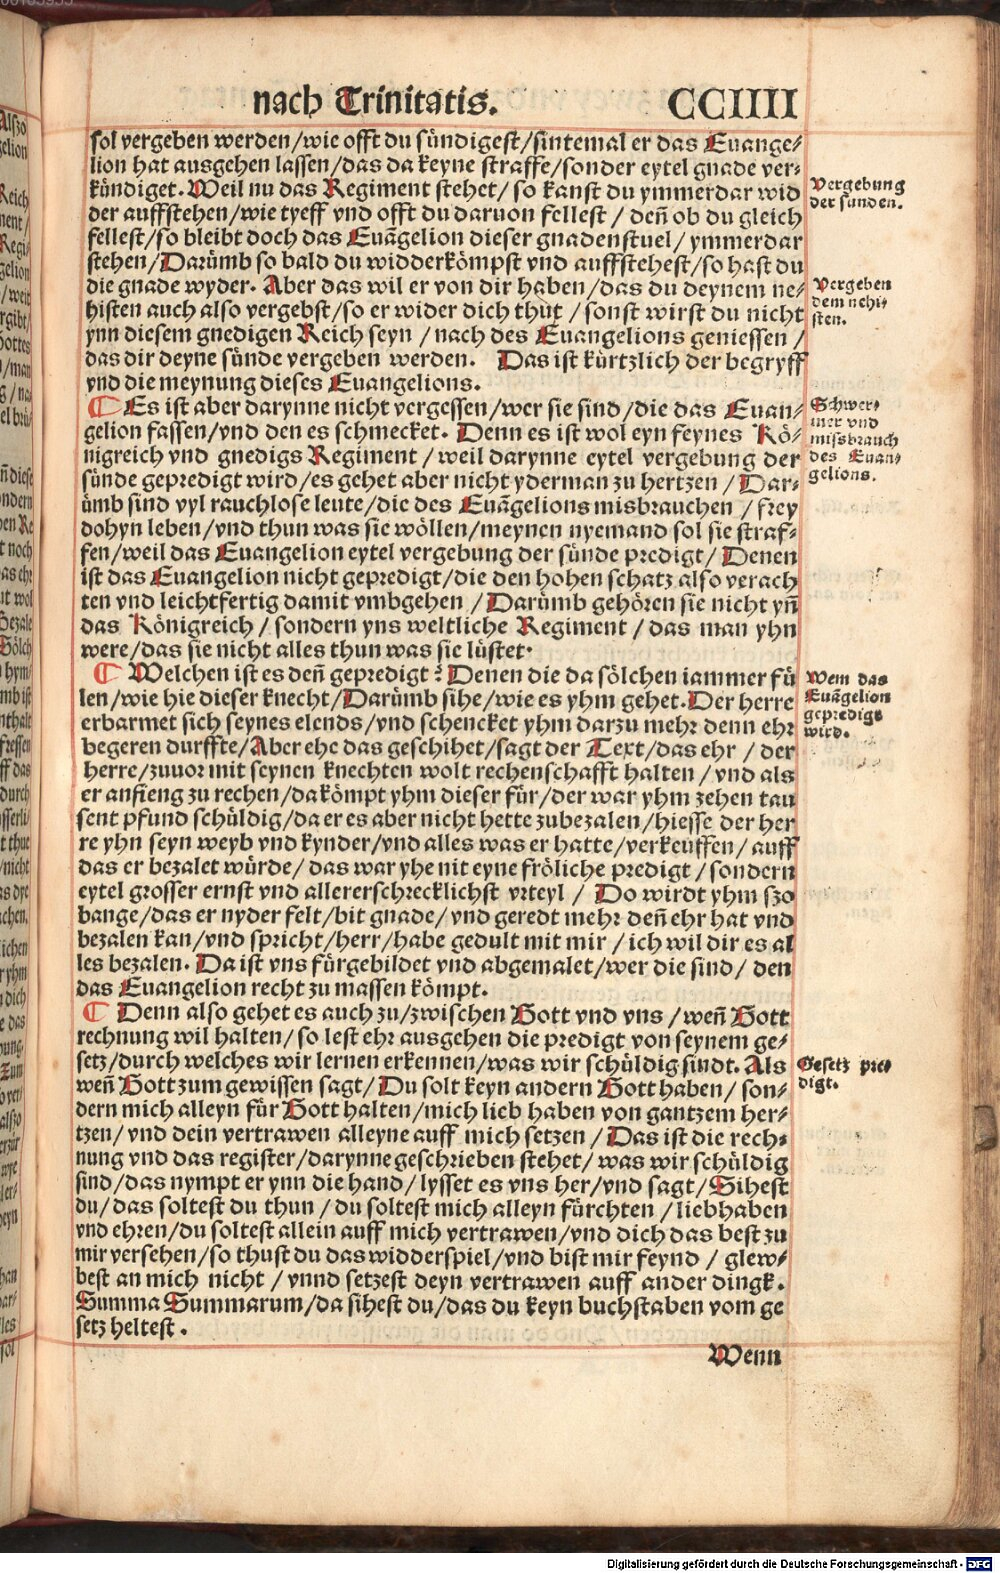 nach Trinitatis. CCIIII
sol vergeben werden/wie offt du sündigest/sintemal er das Euange-
lion hat ausgehen lassen/das da keyne straffe/sonder eytel gnade ver-
kündiget. Weil nu das Regiment stehet/ so kanst du ymmerdar wid
der auffstehen/wie tyeff vnd offt du daruon fellest / deñ ob du gleich
fellest/so bleibt doch das Euãgelion dieser gnadenstuel/ ymmerdar
stehen/Darümb so bald du widderkömpst vnd auffstehest/so hast du
die gnade wyder. Aber das wil er von dir haben/das du deynem ne-
histen auch also vergebst/so er wider dich thut / sonst wirst du nicht
ynn diesem gnedigen Reich seyn / nach des Euangelions geniessen /
das dir deyne sünde vergeben werden. Das ist kürtzlich der begryff
vnd die meynung dieses Euangelions.
Vergebung
der sunden.
Vergeben
dem nehi-
sten.
Es ist aber darynne nicht vergessen/wer sie sind/die das Euan-
gelion fassen/vnd den es schmecket. Denn es ist wol eyn feynes Kö-
nigreich vnd gnedigs Regiment / weil darynne eytel vergebung der
sünde gepredigt wird/es gehet aber nicht yderman zu hertzen / Dar-
ümb sind vyl rauchlose leute/die des Euãgelions misbrauchen / frey
dohyn leben/vnd thun was sie wöllen/meynen nyemand sol sie straf-
fen/weil das Euangelion eytel vergebung der sünde predigt/ Denen
ist das Euangelion nicht gepredigt/die den hohen schatz also verach
ten vnd leichtfertig damit vmbgehen / Darümb gehören sie nicht yñ
das Königreich / sondern yns weltliche Regiment / das man yhn
were/das sie nicht alles thun was sie lüstet.
Schwer-
mer vnd
missbrauch
des Euan-
gelions.
Welchen ist es deñ gepredigt? Denen die da sölchen iammer fü
len/wie hie dieser knecht/Darümb sihe/wie es yhm gehet. Der herre
erbarmet sich seynes elends/vnd schencket yhm darzu mehr denn ehr
begeren durffte/Aber ehe das geschihet/sagt der Text/das ehr / der
herre/zuuor mit seynen knechten wolt rechenschafft halten / vnd als
er anfieng zu rechen/da kömpt yhm dieser für/der war yhm zehen tau
sent pfund schüldig/da er es aber nicht hette zubezalen/hiesse der her
re yhn seyn weyb vnd kynder/vnd alles was er hatte/verkeuffen/ auff
das er bezalet würde/ das war yhe nit eyne fröliche predigt/sondern
eytel grosser ernst vnd allererschrecklichst vrteyl / Do wirdt yhm szo
bange/das er nyder felt/bit gnade/vnd geredt mehr deñ ehr hat vnd
bezalen kan/vnd spricht/herr/habe gedult mit mir / ich wil dir es al
les bezalen. Da ist vns fürgebildet vnd abgemalet/wer die sind/ den
das Euangelion recht zu massen kömpt.
Wem das
Euãgelion
gepredigt
wird.
Denn also gehet es auch zu/zwischen Gott vnd vns / weñ Gott
rechnung wil halten/so lest ehr ausgehen die predigt von seynem ge-
setz/durch welches wir lernen erkennen/was wir schüldig sindt. Als
weñ Gott zum gewissen sagt/Du solt keyn andern Gott haben/ son-
dern mich alleyn für Gott halten/mich lieb haben von gantzem her-
tzen/ vnd dein vertrawen alleyne auff mich setzen / Das ist die rech-
nung vnd das register/darynne geschrieben stehet/ was wir schüldig
sind/das nympt er ynn die hand/ lysset es vns her/vnd sagt/Sihest
du/das soltest du thun /du soltest mich alleyn fürchten /liebhaben
vnd ehren/du soltest allein auff mich vertrawen/vnd dich das best zu
mir versehen/so thust du das widderspiel/vnd bist mir feynd / glew-
best an mich nicht / vnnd setzest deyn vertrawen auff ander dingk.
Summa Summarum/da sihest du/das du keyn buchstaben vom ge
setz heltest.
Gesetz pre-
digt.
Wenn
Digitalisierung gefördert durch die Deutsche Forschungsgemeinschaft - DFG